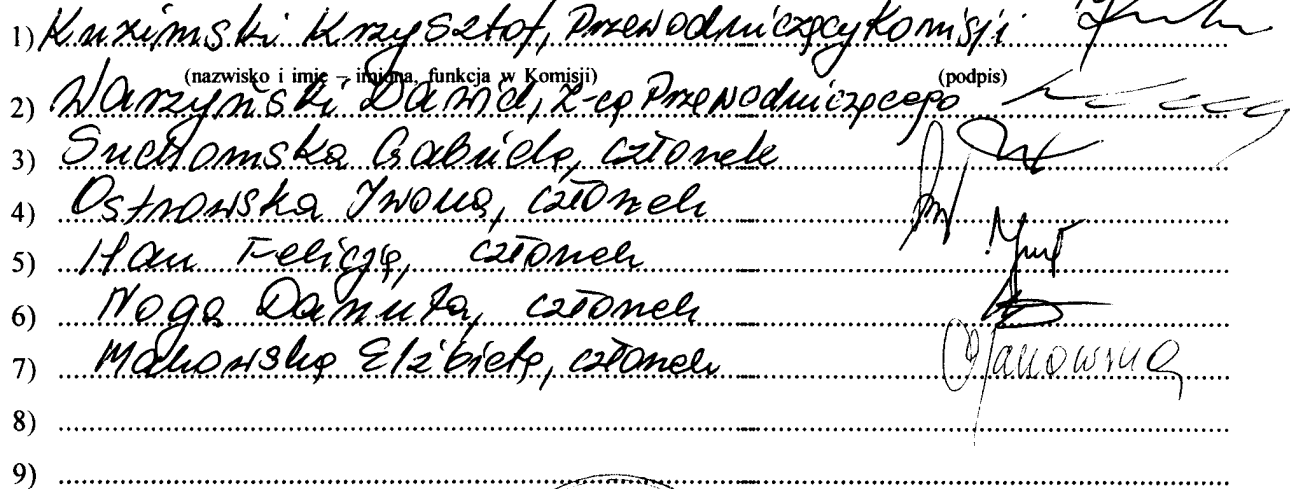 1) Kuzimski Krzysztof, Przewodniczący Komisji
(nazwisko i imię – imiona, funkcja w Komisji) (podpis)
2) Warzyński Dawid, Z-cą Przewodniczącego
3) Suchomska Gabriela, członek
4) Ostrowska Iwona, członek
5) Han Felicja, członek
6) Noga Danuta, członek
7) Makowska Elżbieta, członek Makowska
8)
9)